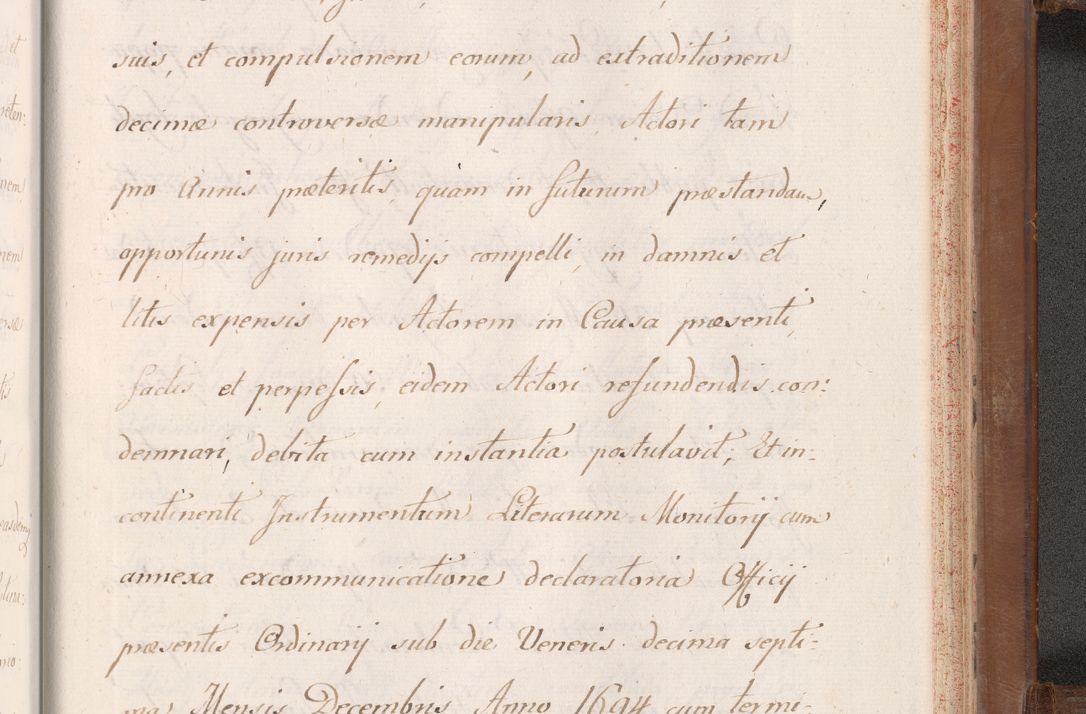 suis, et compulsionem eorum, ad extraditionem
decimæ controversæ manipularis, Actori tam
pro Annis præteritis, quam in futurum præstandam,
opportunis juris remedijs compelli, in damnis et
litis expensis per Actorem in Causa præsenti,
factis et perpessis, eidem Actori refundendis con:
demnari, debita cum instantia postulavit; Et in:
continenti Instrumentum Literarum Monitorij cum
annexa excommunicatione declaratoria Officij
præsentis Ordinarij sub die Veneris decima septi:
ma Mensis Decembris Anno 1694 cum termi: